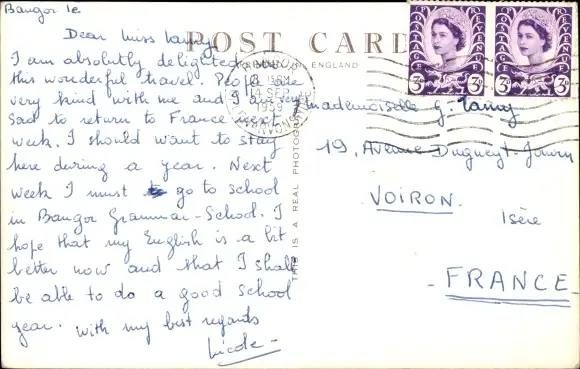 Bangor le
Dear Miss Tamy
POST CARD
ENGLAND
I am absolutly delighted
this wonderful travel. People are
very kind with me and I am very
sad to return to France next
week. I should want to stay
here during a year. Next
week I must go to school
in Bangor Grammar-School. I
hope that my English is a bit
better now and that I shall
be able to do a good school
year. With my best regards
Nicole
THIS IS A REAL PHOTOGRAPH
POSTAGE REVENUE
3D
POSTAGE REVENUE
3D
14 SEP
1959
Mademoiselle G. Tamy
19, Avenue Dugueyt-Jouvin
VOIRON.
Isère
- FRANCE -